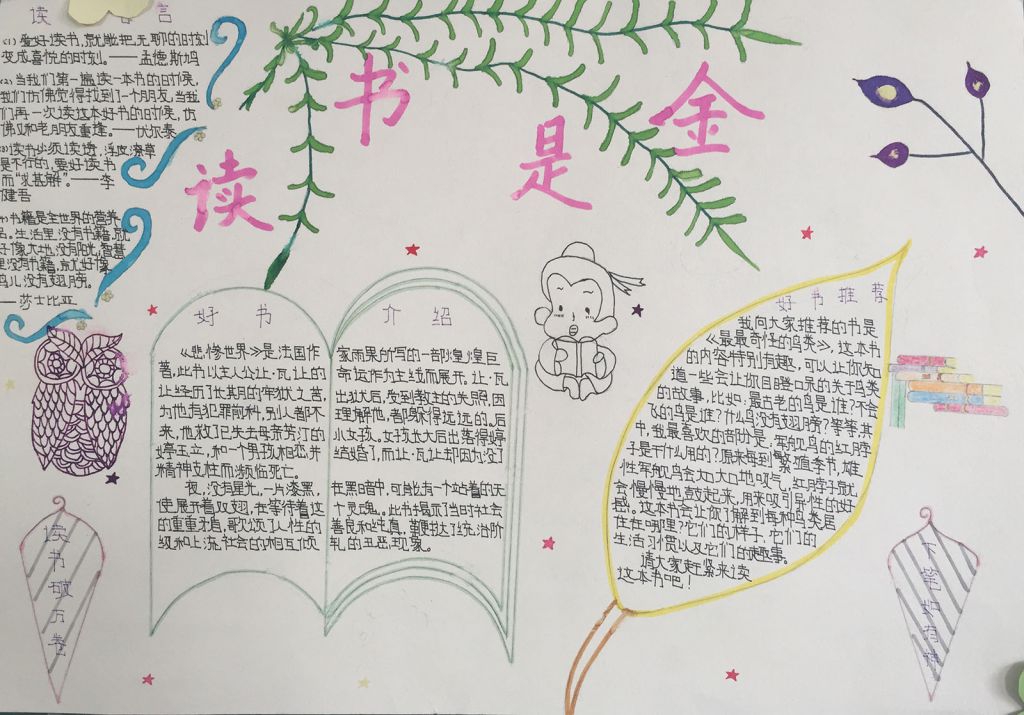 读
言
读书是金
(1)爱好读书,就能把无聊的时刻
变成喜悦的时刻。——孟德斯鸠
(2)当我们第一遍读一本书的时候,
我们仿佛觉得找到了一个朋友,当我
们再一次读这本好书的时候,仿
佛又和老朋友重逢。——伏尔泰
读书必须读透,浮皮潦草
是不行的,要好读书
而“求甚解”。——李
健吾
书籍是全世界的营养
品。生活里没有书籍,就
好像大地没有阳光,智慧
里没有书籍,就好像
鸟儿没有翅膀。
——莎士比亚
好书介绍
《悲惨世界》是法国作家雨果所写的一部煌煌巨
著,此书以主人公让·瓦让的命运作为主线而展开,让·瓦
让经历了长其月的牢狱之苦,出狱后,受到教主的失照,因
为他有犯罪前科,别人都不理解他,都躲得远远的。后
来,他救了已失去母亲芳汀的小女孩。女孩长大后出落得婷
婷玉立,和一个男孩相恋并结婚了,而让·瓦让却因为没了
精神支柱而濒临死亡。
夜,没有星光,一片漆黑,在黑暗中,可能有一个站着的天
使展开着双翅,在等待着这个灵魂。此书揭示了当时社会
的重重矛盾,歌颂了人性的善良和纯真,鞭挞了统治阶
级和上流社会的相互倾轧的丑恶现象。
好书推荐
我向大家推荐的书是
《最最奇怪的鸟类》,这本书
的内容特别有趣,可以让你知
道一些会让你目瞪口呆的关于鸟类
的故事,比如:最古老的鸟是谁?不会
飞的鸟是谁?什么鸟没有翅膀?等等,其
中,我最喜欢的部分是,军舰鸟的红脖
子是干什么用的?原来每到繁殖季节,雄
性军舰鸟会大口大口地吸气,红脖子就
会慢慢地鼓起来,用来吸引异性的好
感。这本书会让你了解到每种鸟类居
住在哪里?它们的样子,它们的
生活习惯以及它们的趣事。
请大家赶紧来读
这本书吧!
读书破万卷
下笔如有神